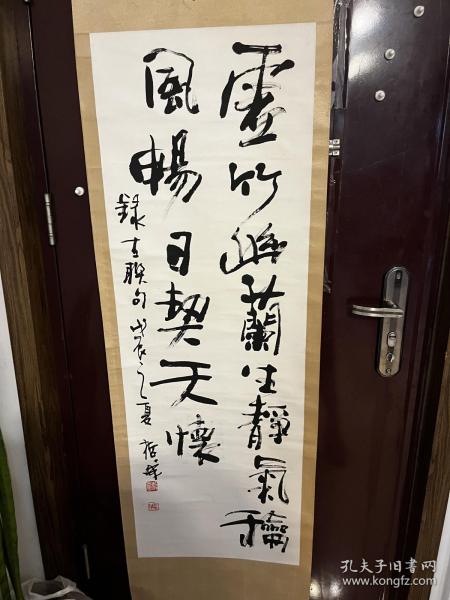 虛竹幽蘭生靜氣龢
風暢日契天懷
錄古聯句 戊辰之夏
孔夫子旧书网
www.kongfz.com